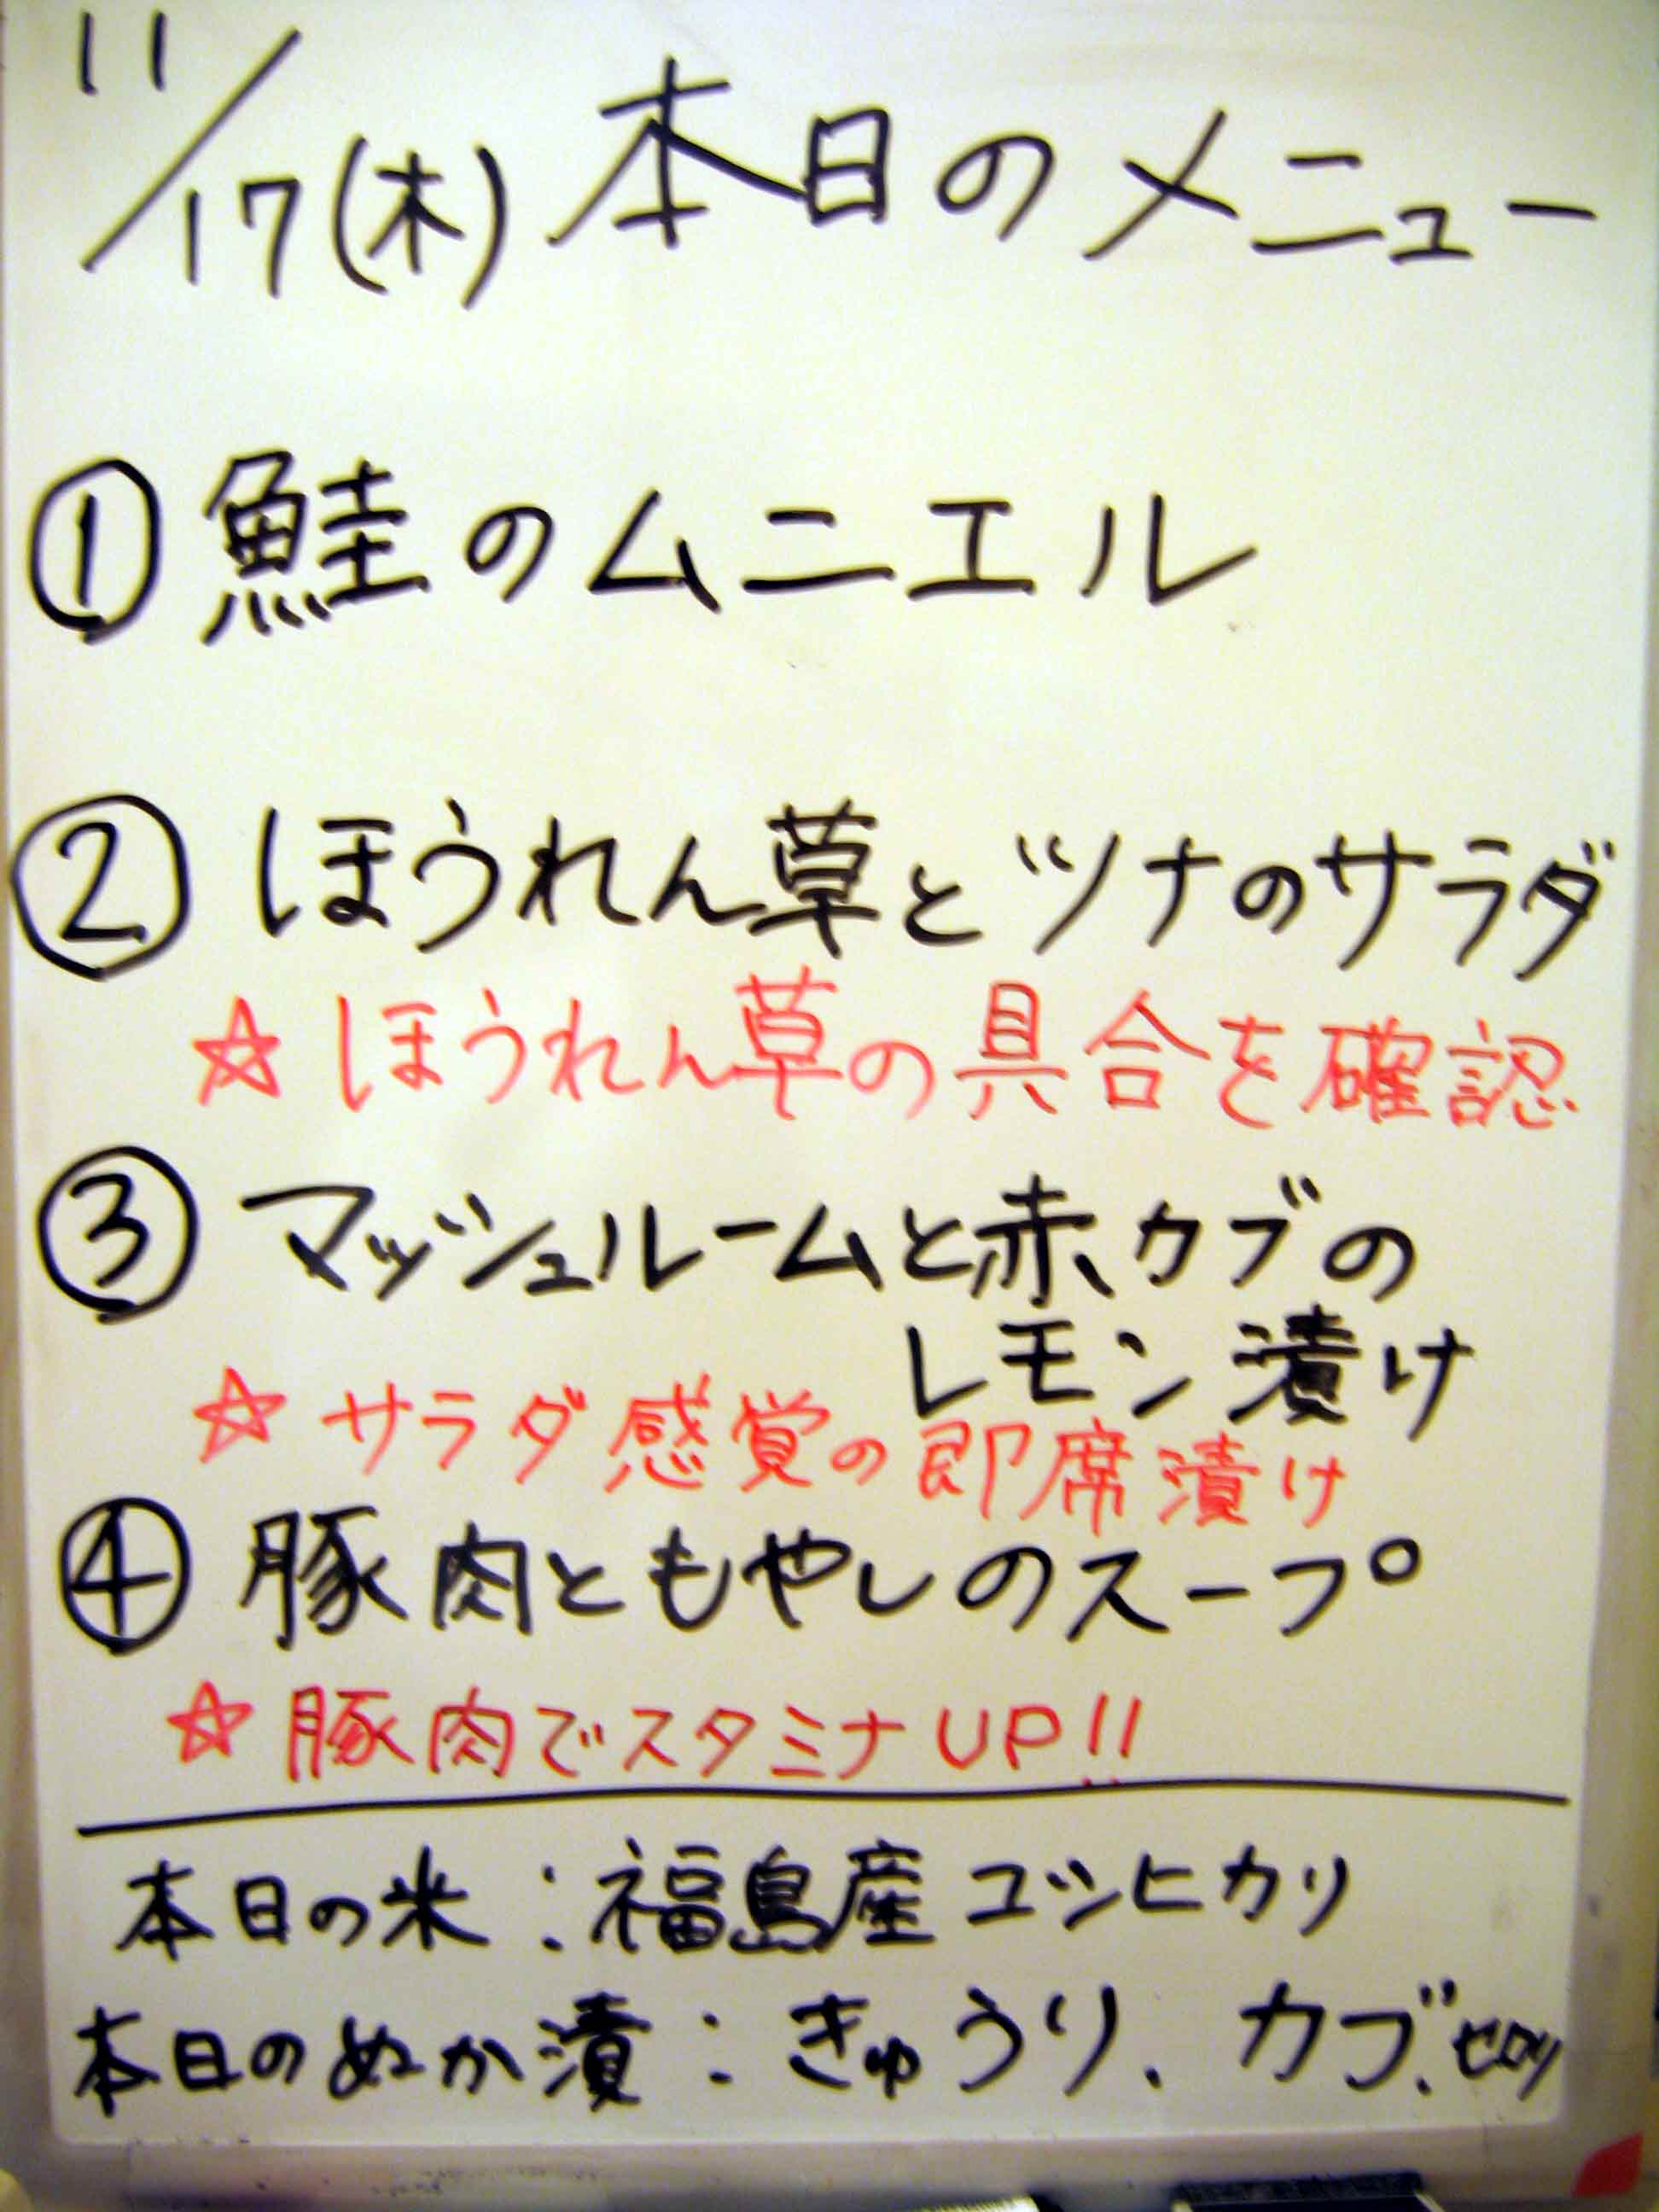 11/17(木)本日のメニュー
①鮭のムニエル
②ほうれん草とツナのサラダ
☆ほうれん草の具合を確認
③マッシュルームと赤カブの
レモン漬け
☆サラダ感覚の即席漬け
④豚肉ともやしのスープ
☆豚肉でスタミナUP!!
本日の米:福島産コシヒカリ
本日のぬか漬:きゅうり、カブ、セロリ